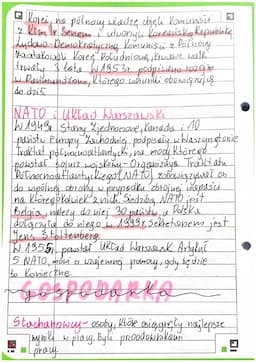 Korei, na północy władzę objęli komuniści
z Kim Ir Senem i utworzyli Koreańską Republikę
Ludowo-Demokratyczną. Komuniści z Północy
zaatakowali Koreę Południową, trwanie walk
trwały 3 lata. W 1953r. podpisano rozejm
w Panmundżonie, którego warunki obowiązują
do dziś.
NATO i Układ Warszawski
W 1949r. Stany Zjednoczone, Kanada i 10
państw Europy Zachodniej podpisały w Waszyngtonie
Traktat północnoatlantycki, na mocy którego
powstał sojusz wojskowy - Organizacja Traktatu
Północnoatlantyckiego (NATO), zobowiązywali się
do wspólnej obrony w przypadku zbrojnej napaści
na któregokolwiek z nich. Siedzibą NATO jest
Belgia, należy do niej 30 państw, a Polska
dołączyła do niego w 1999r. Sekretarzem jest
Jens Stoltenberg.
W 1955r. powstał Układ Warszawski. Artykuł
5 NATO, mówi o wzajemnej pomocy, gdy będzie
to konieczne.
GOSPODARKA
gospodarka
Stachanowcy - osoby, które osiągnęły najlepsze
wyniki w pracy, byli przodownikami
pracy.